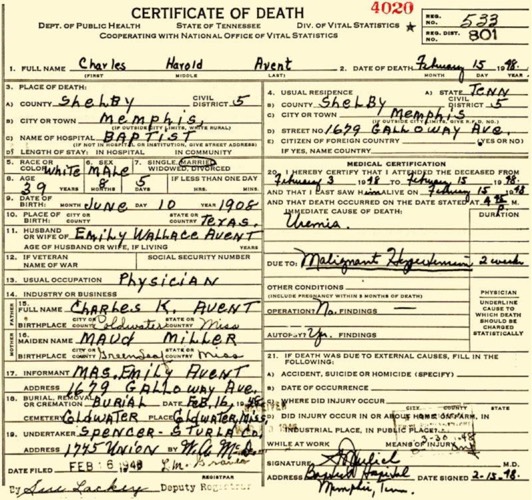 CERTIFICATE OF DEATH
4020
DEPT. OF PUBLIC HEALTH STATE OF TENNESSEE DIV. OF VITAL STATISTICS
COOPERATING WITH NATIONAL OFFICE OF VITAL STATISTICS
REG. NO. 533
REG. DIST. 801
1. FULL NAME Charles Harold Avent
(FIRST) MIDDLE LAST)
2. DATE OF DEATH February 15 1948
MONTH DAY YEAR
3. PLACE OF DEATH:
A) COUNTY SHELBY CIVIL DISTRICT 5
B) CITY OR TOWN MEMPHIS,
(IF OUTSIDE CITY LIMITS, WRITE RURAL)
C) NAME OF HOSPITAL BAPTIST
(IF NOT IN HOSPITAL OR INSTITUTION, GIVE STREET ADDRESS)
D) LENGTH OF STAY: IN HOSPITAL IN COMMUNITY
4. USUAL RESIDENCE A) STATE TENN
B) COUNTY SHELBY CIVIL DISTRICT 5
C) CITY OR TOWN MEMPHIS
(IF OUTSIDE CITY LIMITS, GIVE R.F.D. NO.)
D) STREET NO 1679 GALLOWAY AVE.
E) CITIZEN OF FOREIGN COUNTRY (YES OR NO)
IF YES, NAME COUNTRY
5. RACE OR COLOR WHITE 6. SEX MALE 7. SINGLE, MARRIED WIDOWED, DIVORCED
8. AGE 39 YEARS 8 MONTHS 5 DAYS IF LESS THAN ONE DAY HRS. MIN.
9. DATE OF BIRTH JUNE 10 1908
MONTH DAY YEAR
10. PLACE OF BIRTH: CITY OR COUNTY STATE OR COUNTRY TEXAS.
11. HUSBAND OR WIFE OF EMILY WALLACE AVENT
AGE OF HUSBAND OR WIFE, IF LIVING YEARS
12. IF VETERAN NAME OF WAR SOCIAL SECURITY NUMBER
13. USUAL OCCUPATION PHYSICIAN
14. INDUSTRY OR BUSINESS
FATHER 15. FULL NAME CHARLES K. AVENT
BIRTHPLACE CITY OR COUNTY Coldwater STATE OR COUNTRY Miss
MOTHER 16. MAIDEN NAME MAUD MILLER
BIRTHPLACE CITY OR COUNTY STATE OR COUNTRY Miss
17. INFORMANT MRS. EMILY AVENT
ADDRESS 1679 GALLOWAY AVE.
18. BURIAL, REMOVAL OR CREMATION BURIAL DATE FEB. 16, 1948
CEMETERY COLDWATER PLACE COLDWATER, MISS
19. UNDERTAKER SPENCER-STURLA CO.
ADDRESS 1795 UNION BY
DATE FILED FEB 16 1948
REGISTRAR
By Sue Lackey Deputy Registrar
MEDICAL CERTIFICATION
20. I HEREBY CERTIFY THAT I ATTENDED THE DECEASED FROM
February 3 1948 TO February 15 1948
AND THAT I LAST SAW HIM ALIVE ON February 15 1948
AND THAT DEATH OCCURRED ON THE DATE STATED AT M.
IMMEDIATE CAUSE OF DEATH: DURATION
Uremia.
DUE TO: Malignant Hypertension 2 weeks
OTHER CONDITIONS
(INCLUDE PREGNANCY WITHIN 3 MONTHS OF DEATH)
OPERATION? No. FINDINGS —
AUTOPSY? Yes. FINDINGS
PHYSICIAN
UNDERLINE CAUSE TO WHICH DEATH SHOULD BE CHARGED STATISTICALLY
21. IF DEATH WAS DUE TO EXTERNAL CAUSES, FILL IN THE FOLLOWING:
A) ACCIDENT, SUICIDE OR HOMICIDE (SPECIFY)
B) DATE OF OCCURRENCE
C) WHERE DID INJURY OCCUR CITY CO. STATE
D) DID INJURY OCCUR IN OR ABOUT HOME OR FARM, IN INDUSTRIAL PLACE, IN PUBLIC PLACE?
WHILE AT WORK MEANS OF INJURY
3-30-48
SIGNATURE M.D.
ADDRESS Baptist Hospital DATE SIGNED 2-15-48
Memphis, Tenn.